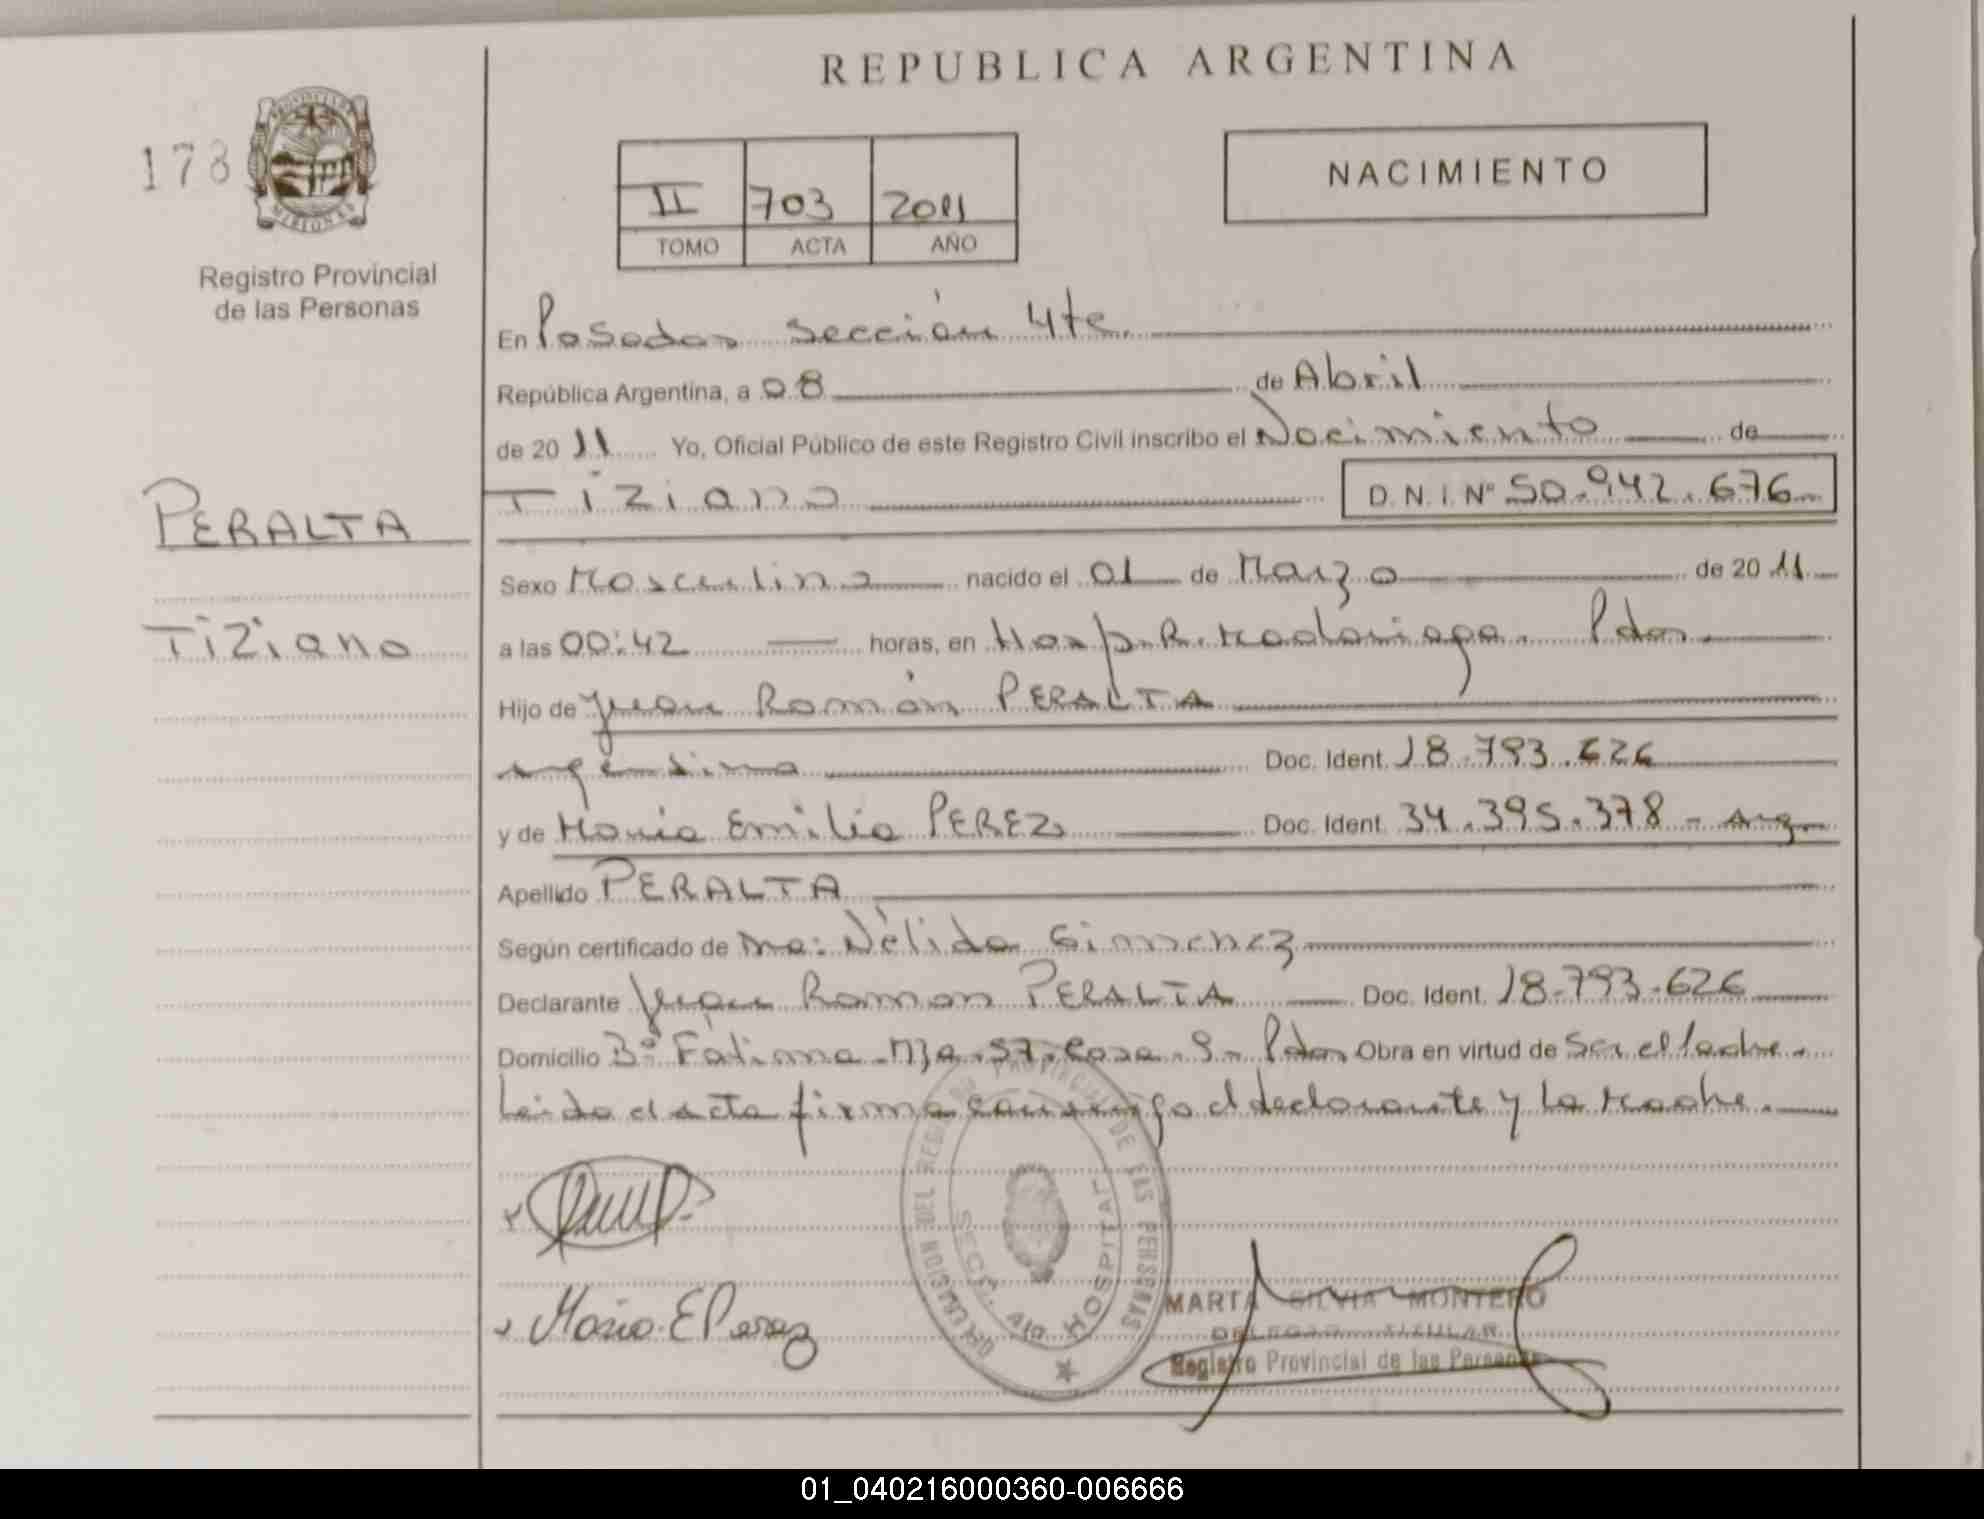 REPUBLICA ARGENTINA
178
PROVINCIA DE
MISIONES
Registro Provincial
de las Personas
II 703 2011
TOMO ACTA AÑO
NACIMIENTO
En Posadas Sección 4ta.
República Argentina, a 08 de Abril
de 2011 Yo, Oficial Público de este Registro Civil inscribo el Nacimiento de
PERALTA
Tiziano
Tiziano D.N.I. Nº 50.942.676
Sexo Masculino nacido el 01 de Marzo de 2011
a las 00:42 horas, en Hosp. R. Madariaga. Pdas.
Hijo de Juan Román PERALTA
argentino Doc. Ident. 18.793.626
y de María Emilia PEREZ Doc. Ident. 34.395.378 - Arg.
Apellido PERALTA
Según certificado de Nélida Gimenez
Declarante Juan Ramon PERALTA Doc. Ident. 18-793-626
Domicilio Bº Fátima Mza. 57. Casa. 9- Pdas Obra en virtud de Ser el Padre.
Leida el acta firma conmigo el declarante y la madre.
DEL REGISTRO PROVINCIAL DE LAS PERSONAS
SECC. 4ta HOSPITAL
Maria E Perez
MARTA SILVIA MONTERO
DELEGADA TITULAR
Registro Provincial de las Personas
01_040216000360-006666